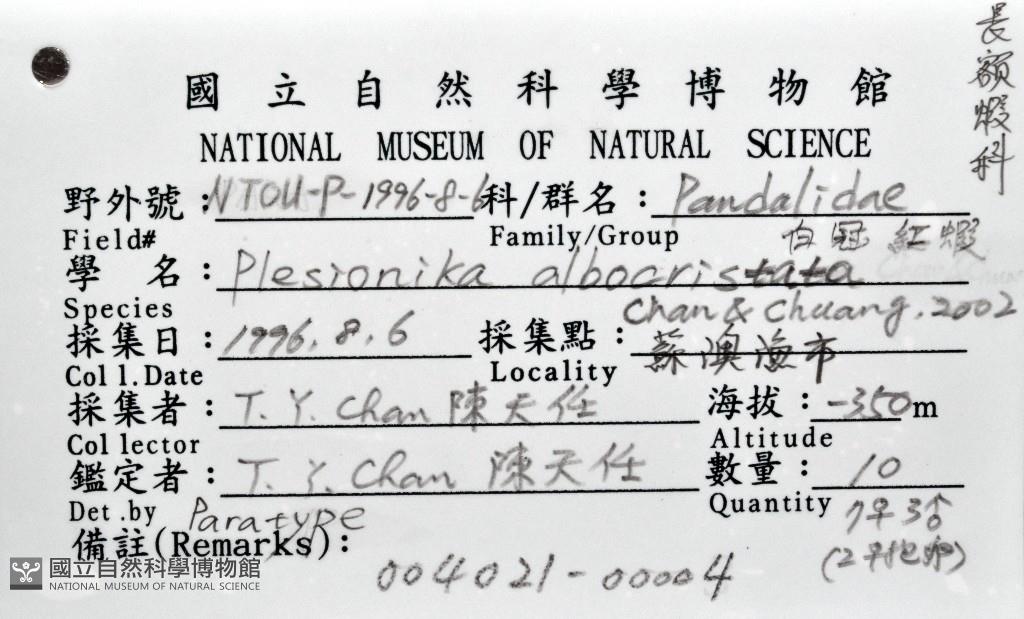 長額蝦科
國立自然科學博物館
NATIONAL MUSEUM OF NATURAL SCIENCE
野外號：NTOU-P-1996-8-6 科/群名：Pandalidae
Field# Family/Group 白冠紅蝦
學 名：Plesionika albocristata
Species Chan & Chuang, 2002
採集日：1996. 8. 6 採集點：蘇澳漁市
Coll.Date Locality
採集者：T. Y. Chan 陳天任 海拔：-350m
Collector Altitude
鑑定者：T. Y. Chan 陳天任 數量：10
Det.by Quantity 7♀ 3♂
Paratype (2♀抱卵)
備註(Remarks)：
004021-00004
國立自然科學博物館
NATIONAL MUSEUM OF NATURAL SCIENCE